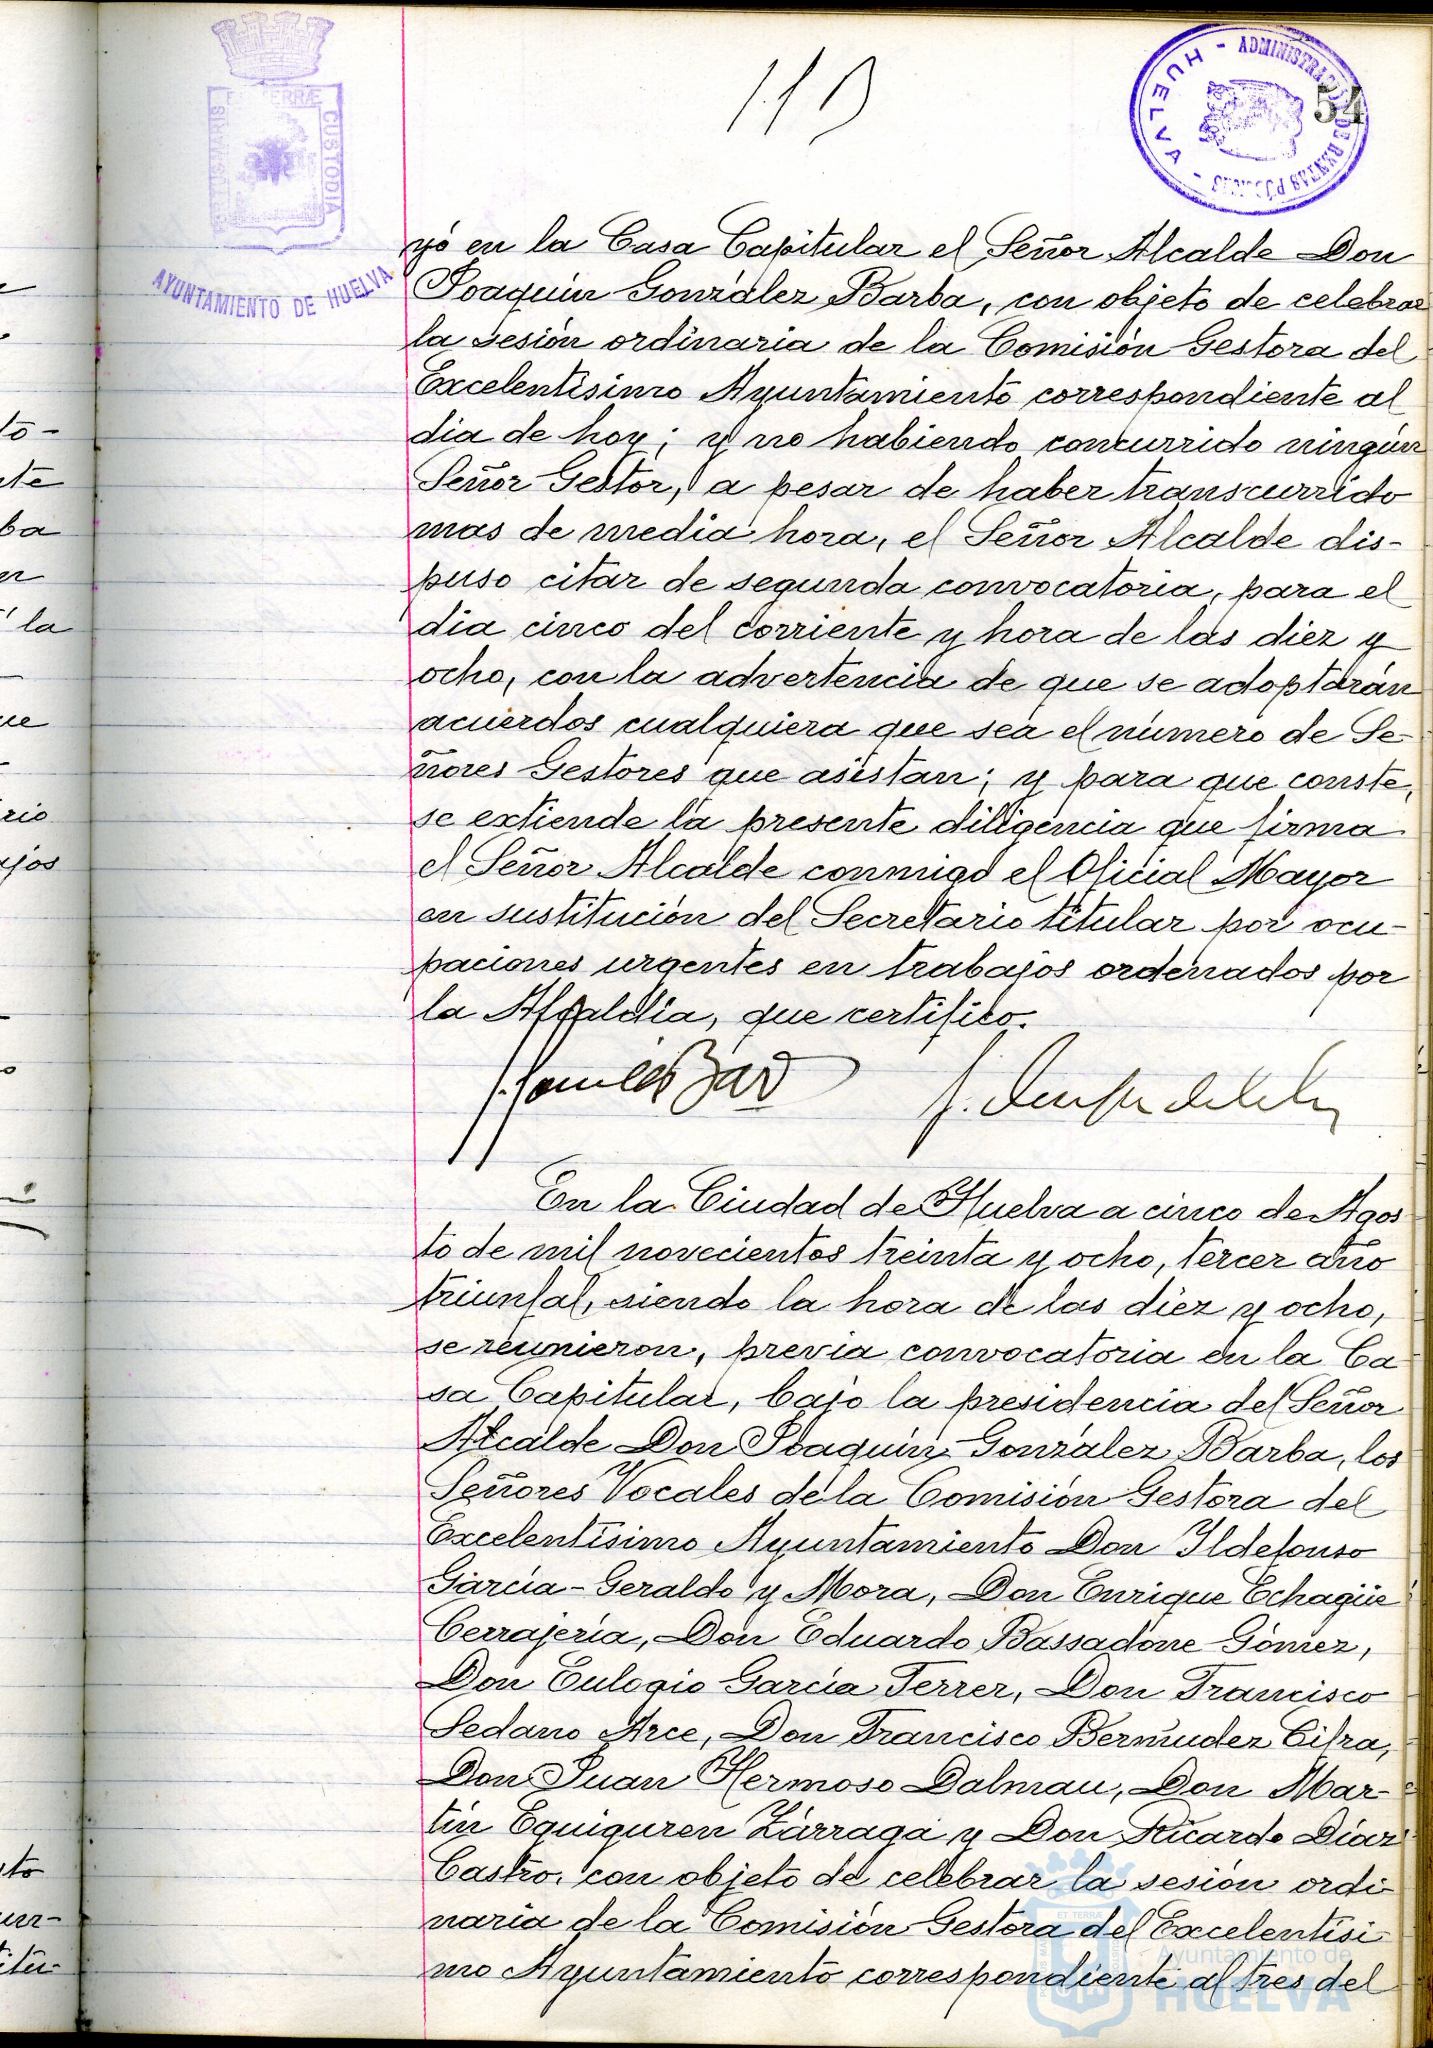 113
54
ADMINISTRACIÓN DE RENTAS PÚBLICAS - HUELVA -
TERRÆ CUSTODIA
AYUNTAMIENTO DE HUELVA
yó en la Casa Capitular el Señor Alcalde Don
Joaquín González Barba, con objeto de celebrar
la sesión ordinaria de la Comisión Gestora del
Excelentísimo Ayuntamiento correspondiente al
dia de hoy; y no habiendo concurrido ningún
Señor Gestor, a pesar de haber transcurrido
mas de media hora, el Señor Alcalde dis-
puso citar de segunda convocatoria, para el
dia cinco del corriente y hora de las diez y
ocho, con la advertencia de que se adoptarán
acuerdos cualquiera que sea el número de Se-
ñores Gestores que asistan; y para que conste,
se extiende la presente diligencia que firma
el Señor Alcalde conmigo el Oficial Mayor
en sustitución del Secretario titular por ocu-
paciones urgentes en trabajos ordenados por
la Alcaldía, que certifico.
En la Ciudad de Huelva a cinco de Agos
to de mil novecientos treinta y ocho, tercer año
triunfal, siendo la hora de las diez y ocho,
se reunieron, previa convocatoria en la Ca
sa Capitular, bajo la presidencia del Señor
Alcalde Don Joaquín González Barba, los
Señores Vocales de la Comisión Gestora del
Excelentísimo Ayuntamiento Don Ildefonso
García-Geraldo y Mora, Don Enrique Echagüe
Cerrajería, Don Eduardo Bassadone Gómez,
Don Eulogio García Ferrer, Don Francisco
Sedano Arce, Don Francisco Bermudez Cifra,
Don Juan Hermoso Dalmau, Don Mar-
tín Eguiguren Zárraga y Don Ricardo Díaz
Castro, con objeto de celebrar la sesión ordi-
naria de la Comisión Gestora del Excelentísi-
mo Ayuntamiento correspondiente al tres del
Ayuntamiento de
HUELVA